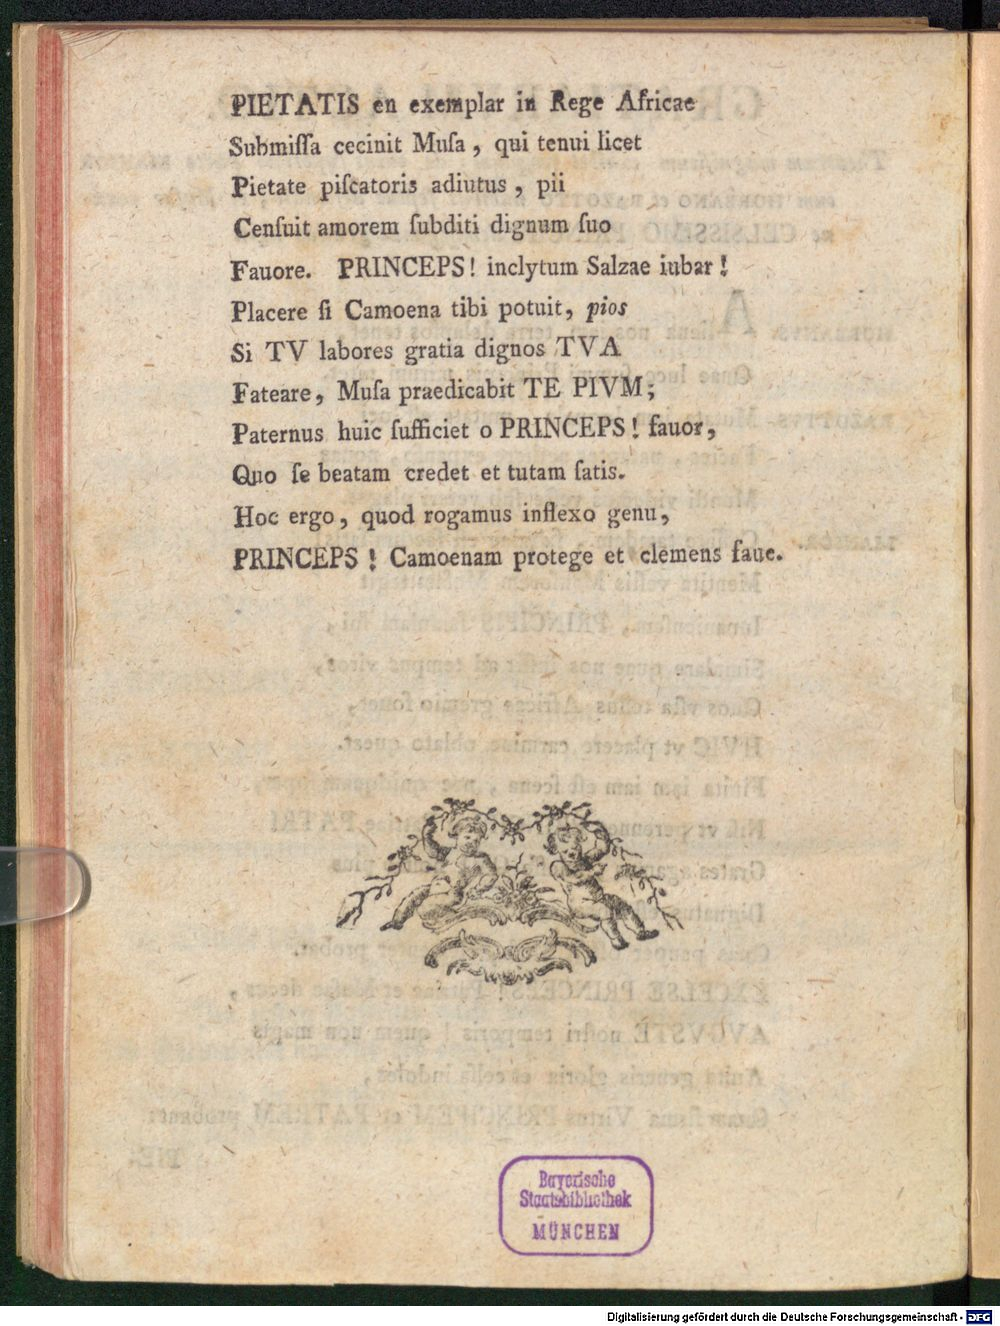 PIETATIS en exemplar in Rege Africae
Submiſſa cecinit Muſa , qui tenui licet
Pietate piſcatoris adiutus , pii
Cenſuit amorem ſubditi dignum ſuo
Fauore. PRINCEPS! inclytum Salzae iubar!
Placere ſi Camoena tibi potuit, pios
Si TV labores gratia dignos TVA
Fateare, Muſa praedicabit TE PIVM;
Paternus huic ſufficiet o PRINCEPS! fauor,
Quo ſe beatam credet et tutam ſatis.
Hoc ergo, quod rogamus inflexo genu,
PRINCEPS! Camoenam protege et clemens faue.
Bayerische
Staatsbibliothek
MÜNCHEN
Digitalisierung gefördert durch die Deutsche Forschungsgemeinschaft - DFG